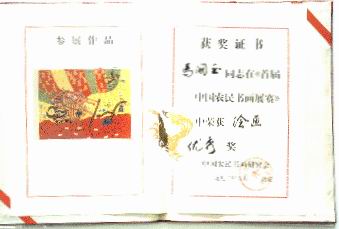 参展作品
获奖证书
同志在《首届
中国农民书画展赛》
中荣获 绘画
优秀 奖
中国农民书画研究会